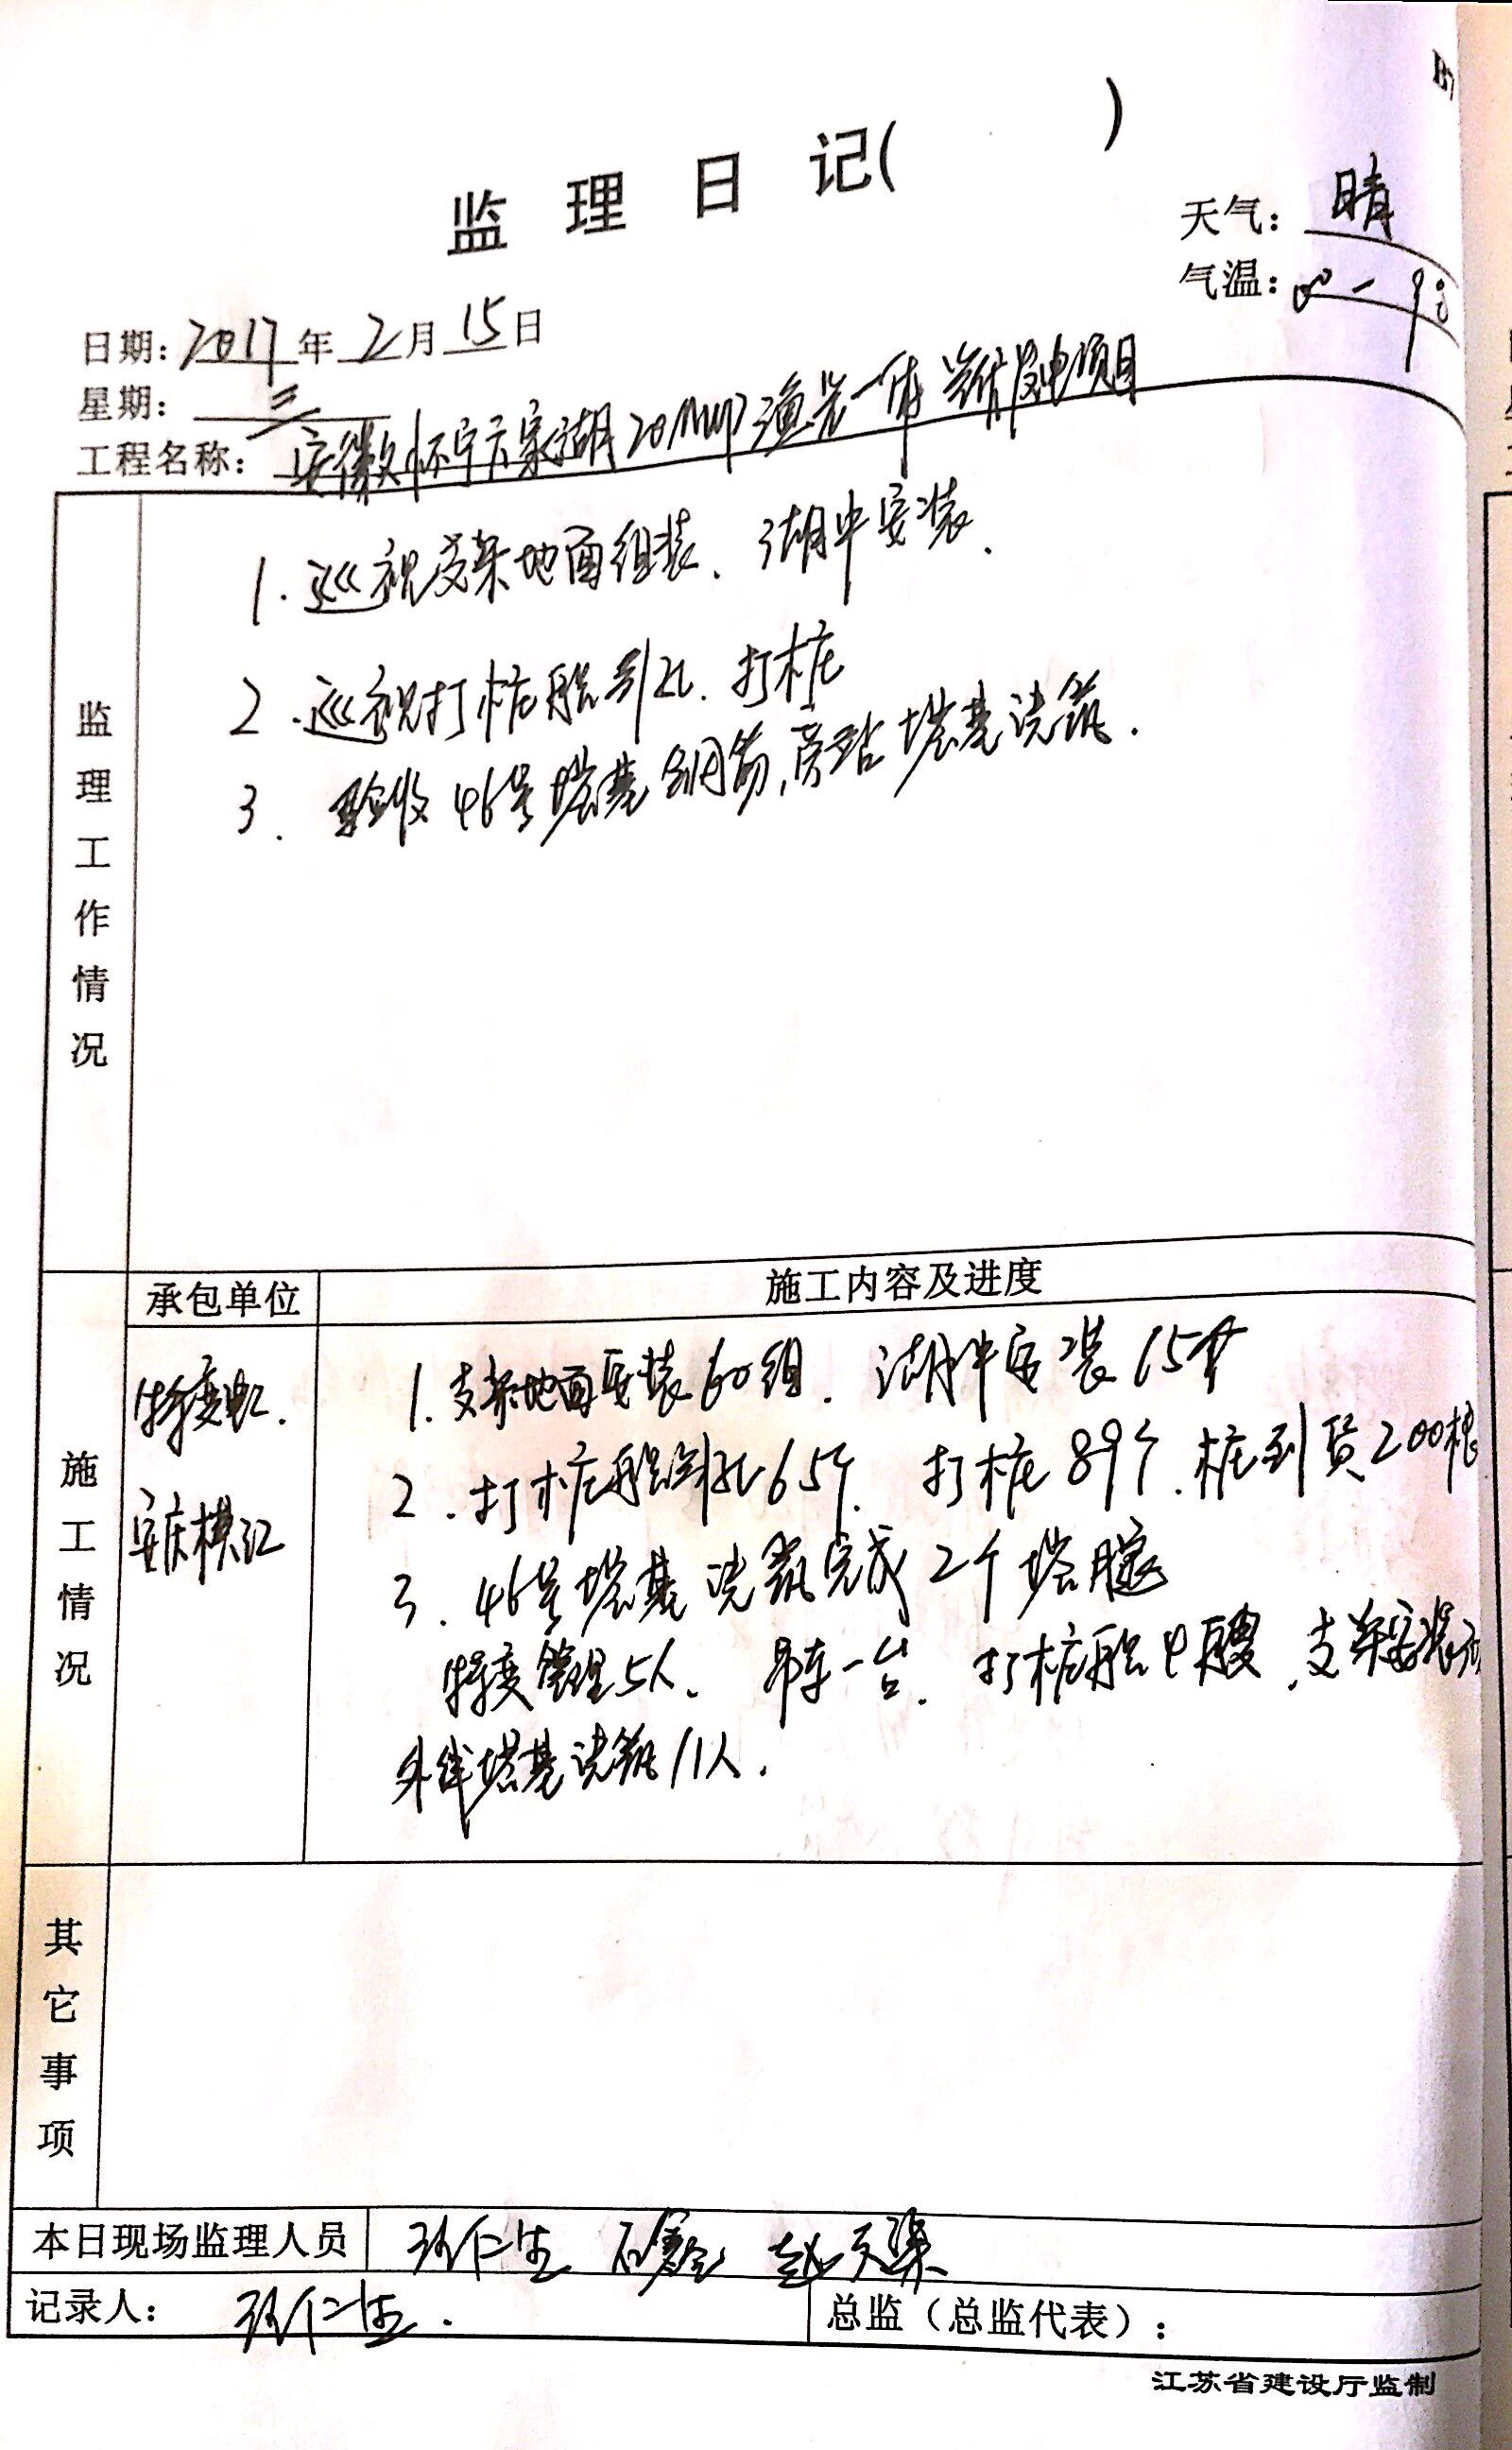 监理日记（ ）
天气：晴
气温：
日期：2017年2月15日
星期：三
工程名称：安徽怀宁卞家湖20MWP渔光一体光伏发电项目
监理工作情况
1.巡视支架地面组装、湖中安装.
2.巡视打桩船引孔.打桩
3.验收46号塔基钢筋,旁站塔基浇筑.
承包单位
施工内容及进度
施工情况
特变电工.
安庆横江
1.支架地面安装60组.湖中安装15个
2.打桩船引孔65个.打桩89个.桩到货200根
3.46号塔基浇筑完成2个塔腿
特变管理5人.吊车一台.打桩船4艘.支架安装
外线塔基浇筑11人.
其它事项
本日现场监理人员
仁生 石 赵天
记录人：仁生.
总监（总监代表）：
江苏省建设厅监制